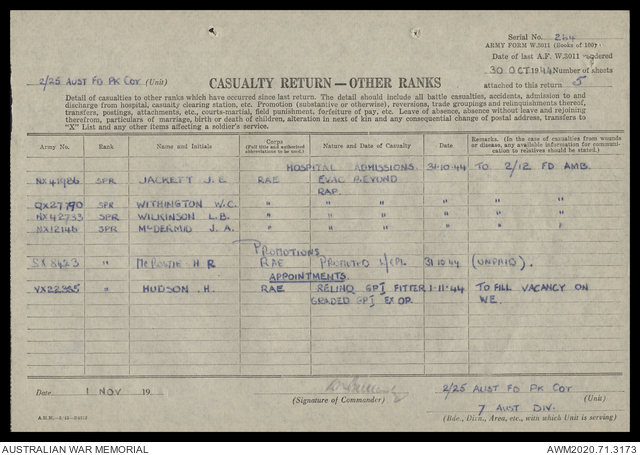 Serial No. 244
ARMY FORM W.3011 (Books of 100)
Date of last A.F. W.3011 rendered
30 OCT 1944 Number of sheets
attached to this return 5
2/25 AUST FD PK COY (Unit)
CASUALTY RETURN—OTHER RANKS
Detail of casualties to other ranks which have occurred since last return. The detail should include all battle casualties, accidents, admission to and
discharge from hospital, casualty clearing station, etc. Promotion (substantive or otherwise), reversions, trade groupings and relinquishments thereof,
transfers, postings, attachments, etc., courts-martial, field punishment, forfeiture of pay, etc. Leave of absence, absence without leave and rejoining
therefrom, particulars of marriage, birth or death of children, alteration in next of kin and any consequential change of postal address, transfers to
"X" List and any other items affecting a soldier's service.
Army No. Rank Name and Initials Corps (Full title and authorized abbreviations to be used.) Nature and Date of Casualty Date Remarks. (In the case of casualties from wounds or disease, any available information for communication to relatives should be stated.)
HOSPITAL ADMISSIONS. 31-10-44 TO 2/12 FD AMB.
SPR JACKETT J.E RAE EVAC BEYOND
RAP.
QX27790 SPR WITHINGTON W.C. " " " "
NX42733 SPR WILKINSON L.B. " " " "
NX12146 SPR McDERMID J.A. " " " "
PROMOTIONS
SX8423 " H R RAE PROMOTED L/CPL 31-10-44 (UNPAID).
APPOINTMENTS.
" HUDSON .H. RAE RELINQ GP I FITTER 1-11-44 TO FILL VACANCY ON
GRADED GP I EX OP. WE.
Date 1 NOV 19
(Signature of Commander)
2/25 AUST FD PK COY
(Unit)
7 AUST DIV.
(Bde., Divn., Area, etc., with which Unit is serving)
AUSTRALIAN WAR MEMORIAL AWM2020.71.3173